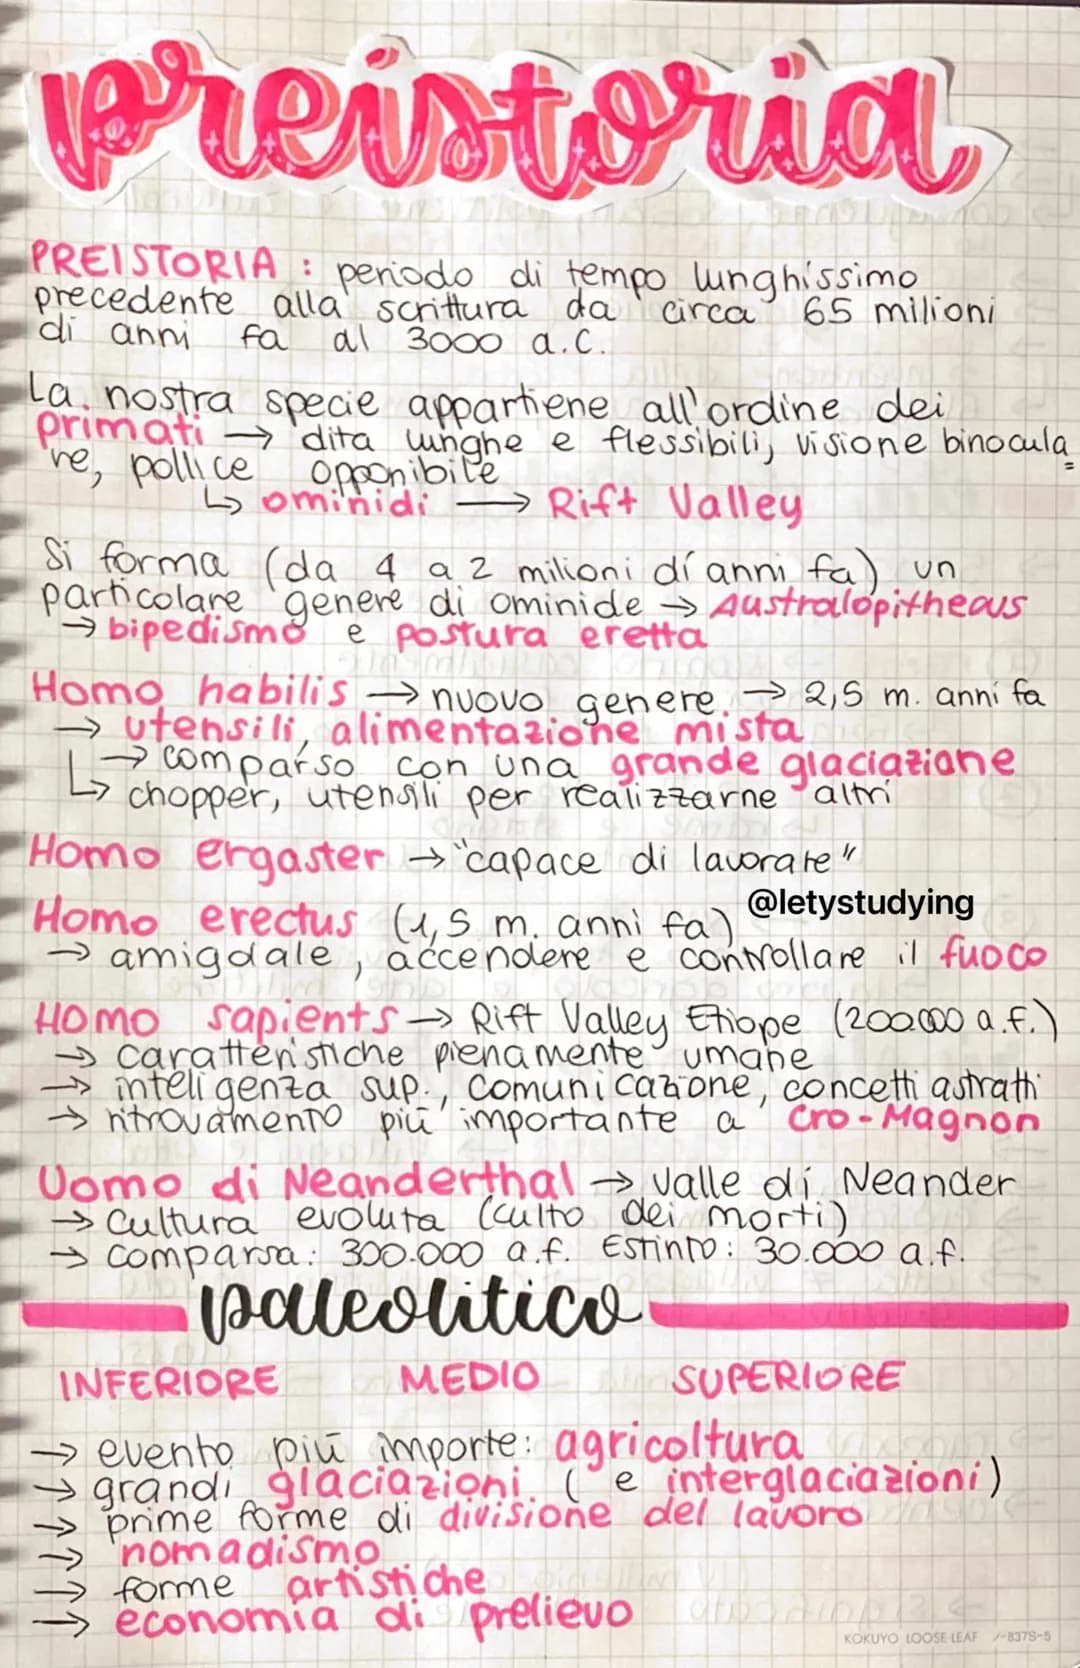 preistoria
PREISTORIA : periodo di tempo lunghissimo
precedente alla scrittura da circa 65 milioni
di anni fa al 3000 a.C.
La nostra specie appartiene all'ordine dei
primati → dita lunghe e flessibili, visione binocula
re, pollice opponibile
↳ ominidi → Rift Valley
Si forma (da 4 a 2 milioni di anni fa) un
particolare genere di ominide → Australopitheous
→ bipedismo e postura eretta
Homo habilis → nuovo genere → 2,5 m. anni fa
→ utensili, alimentazione mista
→ comparso con una grande glaciazione
↳ chopper, utensili per realizzarne altri
Homo ergaster → "capace di lavorare"
@letystudying
Homo erectus (1,5 m. anni fa)
→ amigdale, accendere e controllare il fuoco
Homo sapients → Rift Valley Etiope (200.000 a.f.)
→ caratteristiche pienamente umane
→ inteligenza sup., comunicazione, concetti astratti
→ ritrovamento più importante a Cro-Magnon
Uomo di Neanderthal → valle di Neander
→ cultura evoluta (culto dei morti)
→ comparsa: 300.000 a.f. Estinto: 30.000 a.f.
paleolitico
INFERIORE MEDIO SUPERIORE
→ evento più importe: agricoltura
→ grandi glaciazioni (e interglaciazioni)
→ prime forme di divisione del lavoro
→ nomadismo
→ forme artistiche
→ economia di prelievo
KOKUYO LOOSE LEAF ノ-837S-5